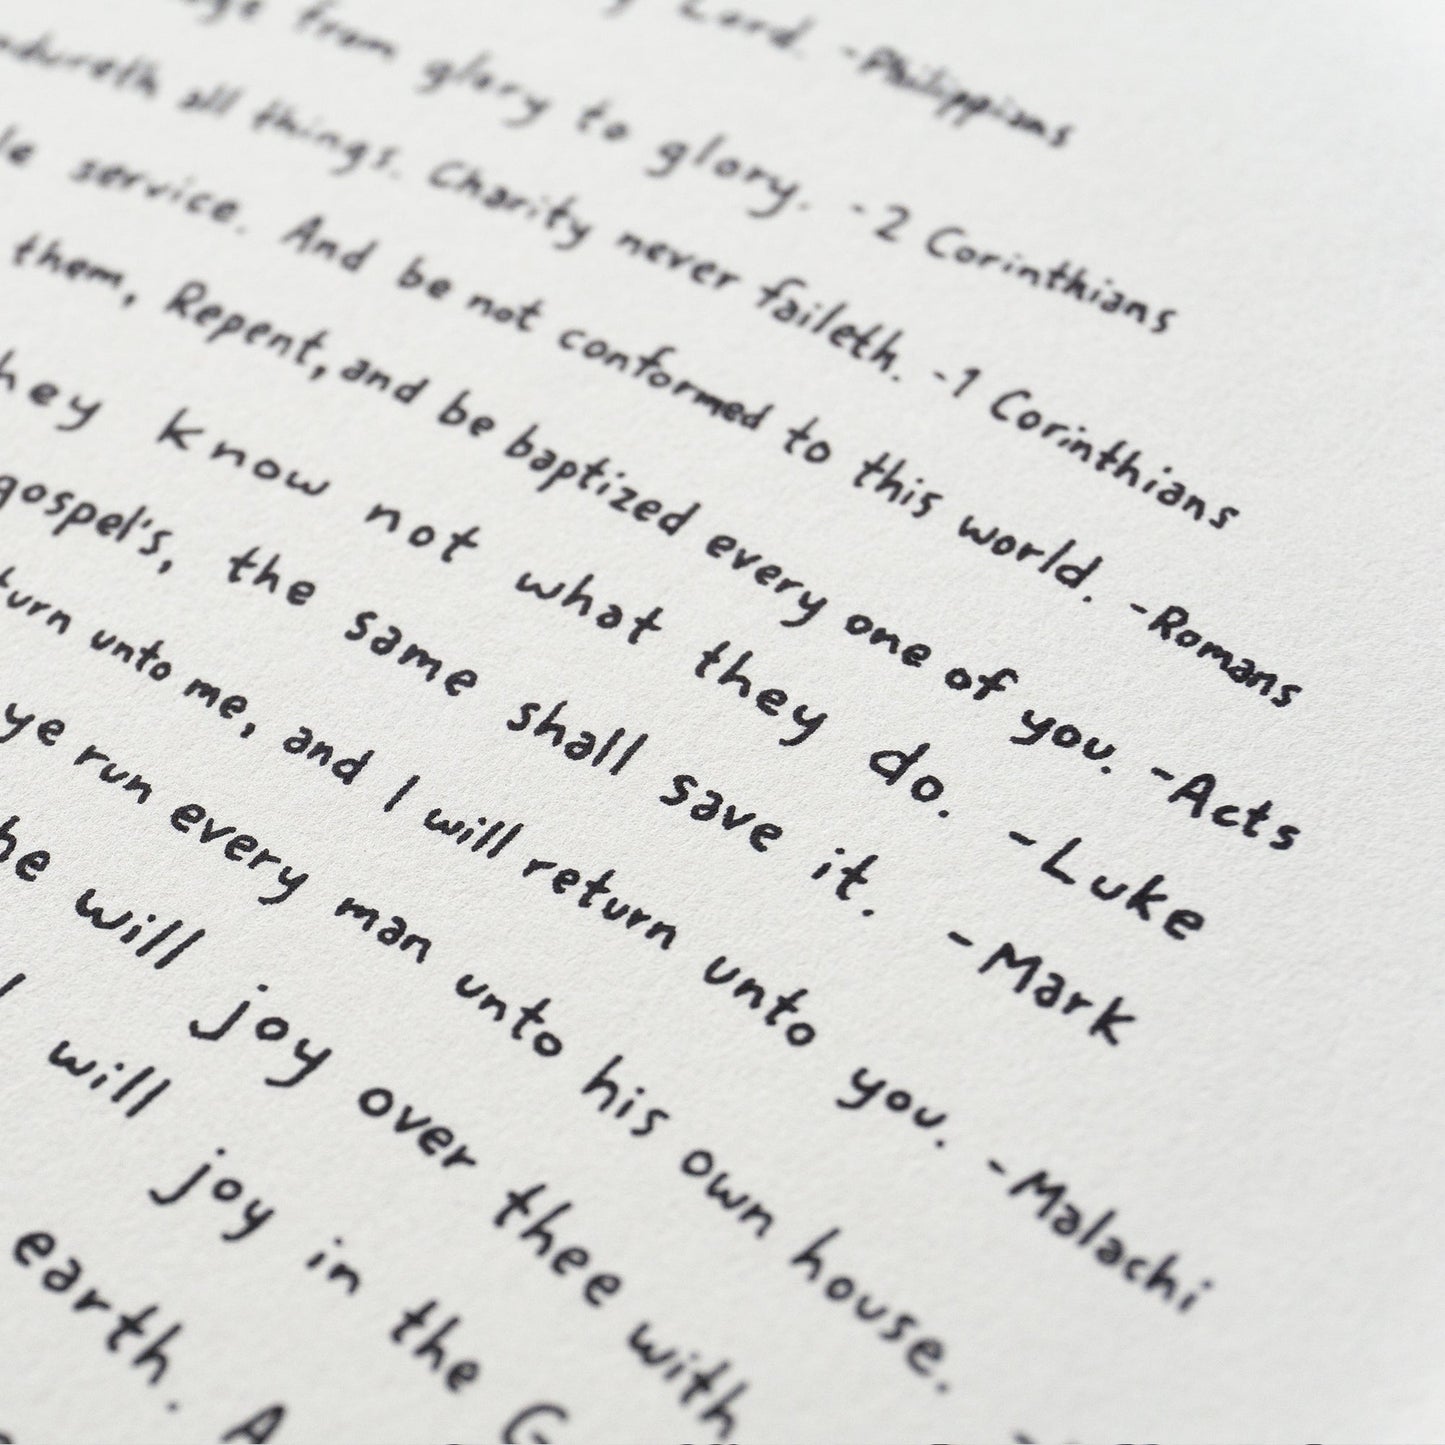 Lord. -Philippians
from glory to glory. -2 Corinthians
all things. Charity never faileth. -1 Corinthians
service. And be not conformed to this world. -Romans
them, Repent, and be baptized every one of you. -Acts
know not what they do. -Luke
gospel's, the same shall save it. -Mark
unto me, and I will return unto you. -Malachi
ye run every man unto his own house.
he will joy over thee with
will joy in the
earth. A